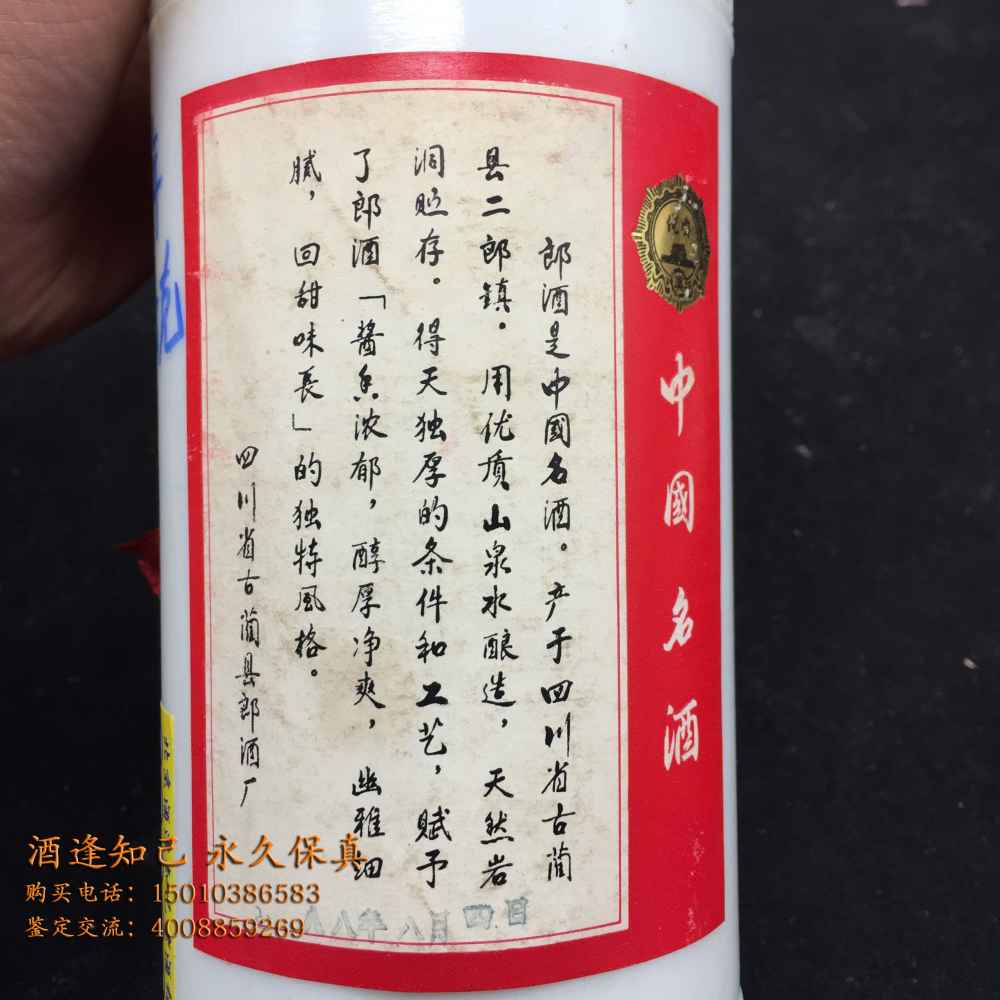 中國名酒
郎酒是中國名酒。产于四川省古蔺
县二郎镇。用优质山泉水酿造，天然岩
洞贮存。得天独厚的条件和工艺，赋予
了郎酒「酱香浓郁，醇厚净爽，幽雅细
腻，回甜味長」的独特风格。
四川省古蔺县郎酒厂
八年八月四日
酒逢知己 永久保真
购买电话：15010386583
鉴定交流：4008859269